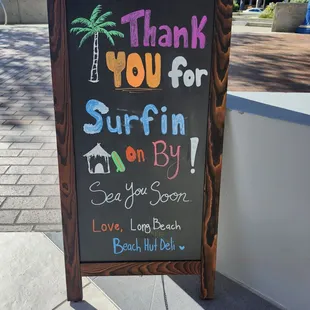 Thank
YOU for
Surfin
on By!
Sea You Soon
Love, Long Beach
Beach Hut Deli